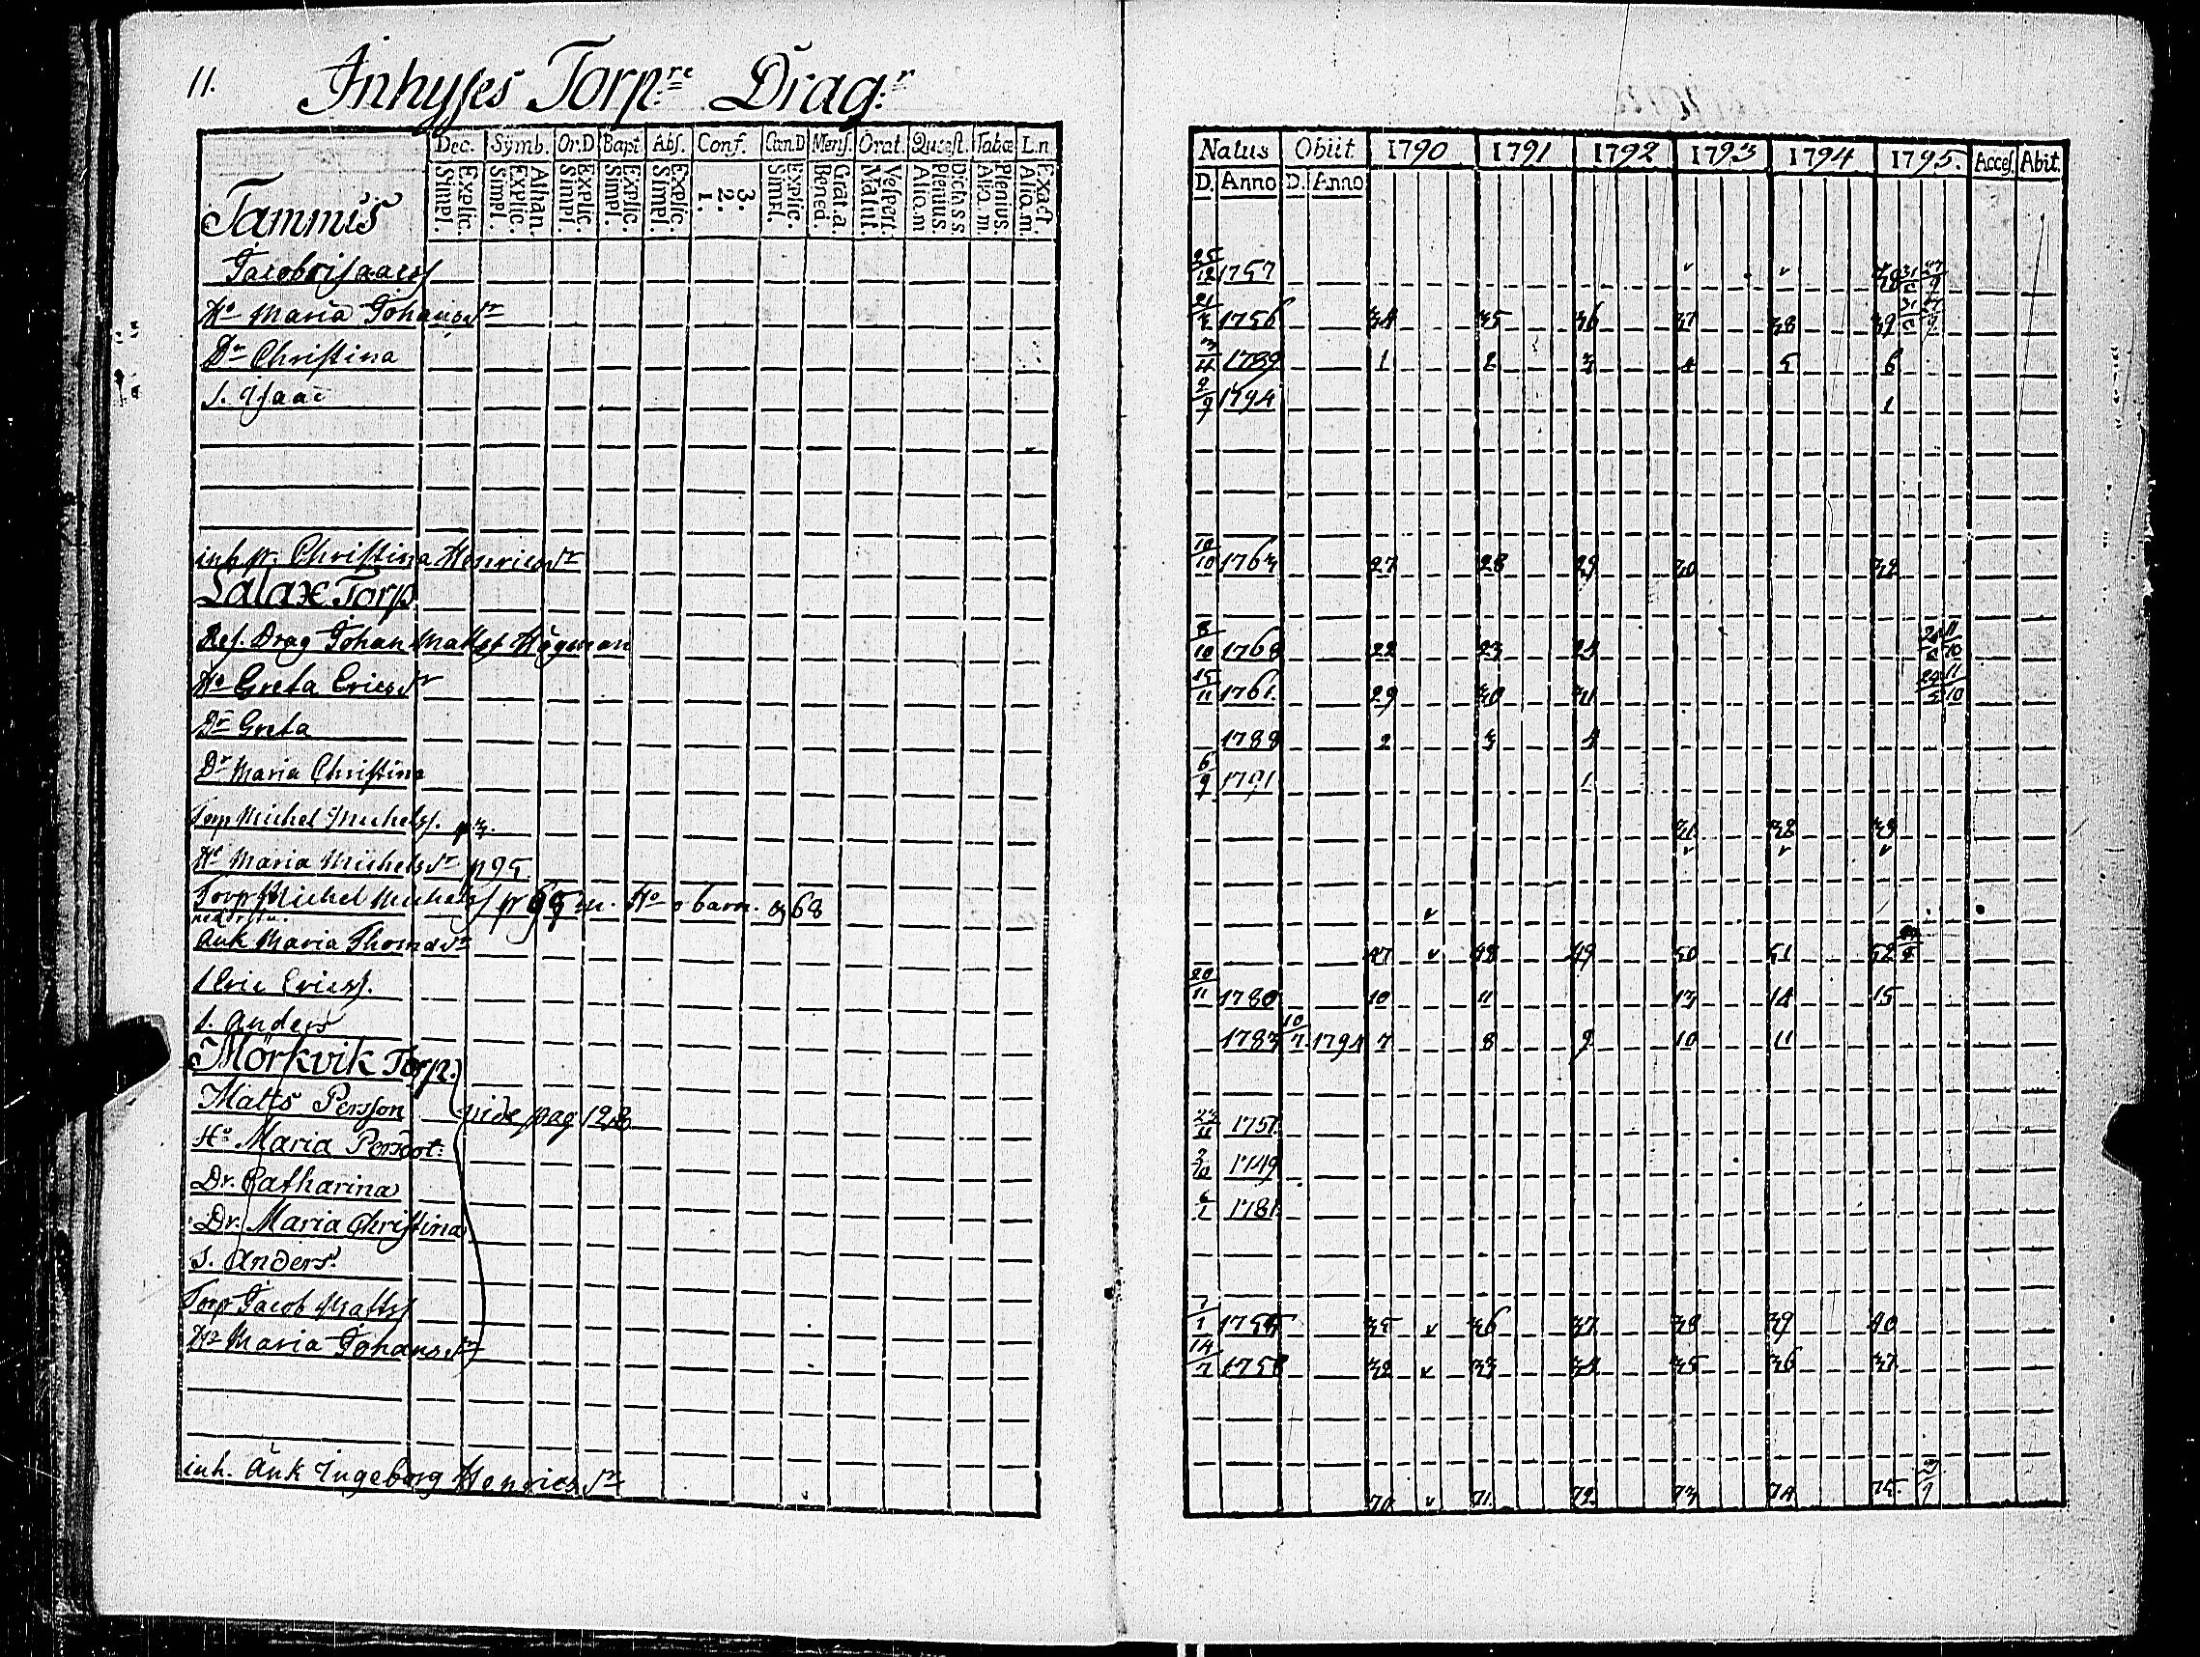 11. Inhyses Torp:re Drag:r
Dec. Symb. Or.D Bapt Abs. Conf. Cæn.D Mens. Orat. Quæst. Tabœ L.n
Explic. Simpl. Athan. Explic. Simpl. Explic. Simpl. Explic. Simpl. Explic. Simpl. 3. 2. 1. Explic. Simpl. Grat.a. Bened. Vespert. Matut. Dicta s.s. Plenius. Aliq.m Plenius. Aliq.m. Exact. Aliq.m.
Natus Obiit 1790 1791 1792 1793 1794 1795. Acces. Abit.
D. Anno D. Anno
Tammis
Jacob Isaacss 25/12 1757 v v
Ho Maria Johansdr 21/3 1756 34 35 36 37 38 39
Dr Christina 3/4 1789 1 2 3 4 5 6
S. Isaac 2/9 1794 1
inh. pr. Christina Henricsdr 10/10 1763 27 28 29 30 32
Lalax Torp
Res. Drag Johan Mattss Högman 8/10 1768 22 23 24
Ho Greta Ericsdr 15/11 1761 29 30 31 24/5 11/10
Dr Greta 1788 2 3 4
Dr Maria Christina 6/9 1791 1
Torp Michel Michelss. p 3. 31 32 33
Ho Maria Michelsdr p 95. v v v
Torp Michel Michelss p 65 m. Ho o barn. og 68 v
Änk Maria Thomasdr 47 v 48 49 50 51 52
S Eric Ericss. 20/11 1780 10 11 13 14 15
S. Anders 1783 10/7 1794 7 8 9 10 11
Mörkvik Torp.
Matts Persson vide pag 128 23/11 1751
Ho Maria Persdot: 1749
Dr. Catharina 6/1 1781
Dr. Maria Christina
S. Anders.
Torp Jacob Mattss 7/1 1754 35 v 36 37 38 39 40
Ho Maria Johansdr 14/7 1758 32 v 33 34 35 36 37
inh. Änk Ingeborg Henricsdr 70 v 71. 72. 73 74 75.